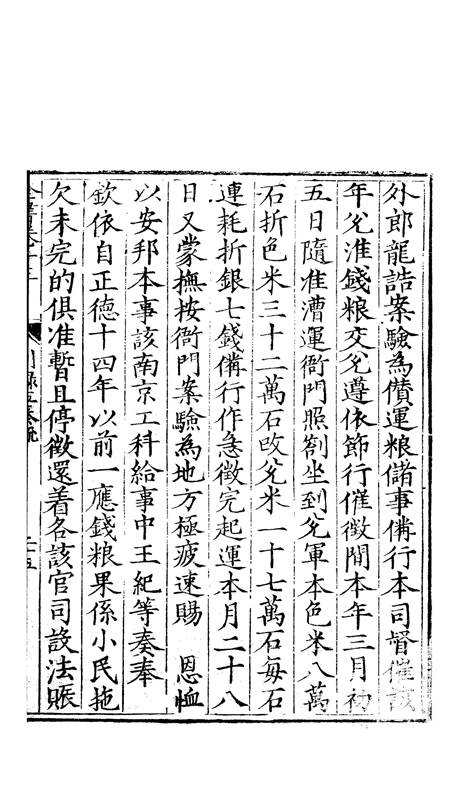 外郎龍誥案驗為儧運粮儲事俻行本司督催該
年兌淮錢粮交兌遵依節行催徴間本年三月初
五日隨准漕運衙門照劄坐到兌軍本色米八萬
石折色米三十二萬石改兌米一十七萬石每石
連耗折銀七錢俻行作急徴完起運本月二十八
日又蒙撫按衙門案驗為地方極疲速賜　恩恤
以安邦本事該南京工科給事中王紀等奏奉
欽依自正德十四年以前一應錢粮果係小民拖
欠未完的俱准暫且停徴還着各該官司設法賑
二十五